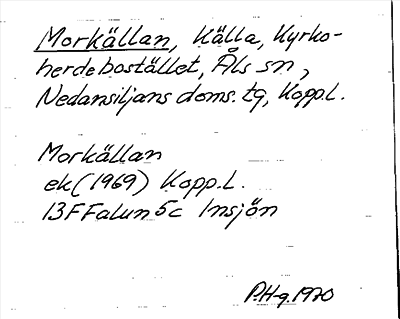 Morkällan, Källa, Kyrko-
herdebostället, Åls sn,
Nedansiljans doms. tg, Kopp.l.
Morkällan
ek (1969) Kopp.l.
13F Falun 5c Insjön
P.H-g. 1970